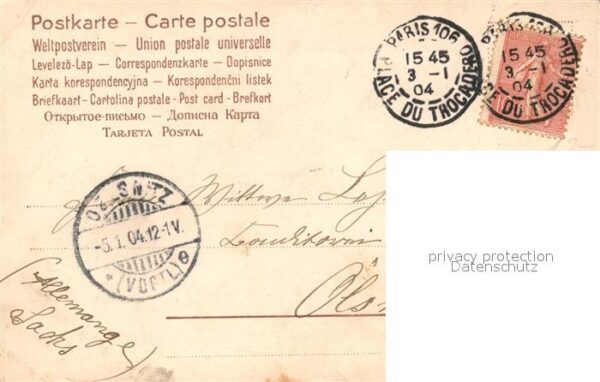 Postkarte — Carte postale
Weltpostverein — Union postale universelle
Levelező-Lap — Correspondenzkarte — Dopisnice
Karta korespondencyjna — Korespondenční listek
Briefkaart - Cartolina postale - Post card - Brefkort
Открытое-письмо — Дописна Карта
Tarjeta Postal
PARIS 106
15 45
3 -1
04
PLACE DU TROCADERO
PARIS 106
15 45
3 -1
04
PLACE DU TROCADERO
OELSNITZ
-5.1.04.12-1V.
* (VOGTL) e
Wittwe
Conditorin
Öls
(Allemagne
Sachs)
privacy protection
Datenschutz